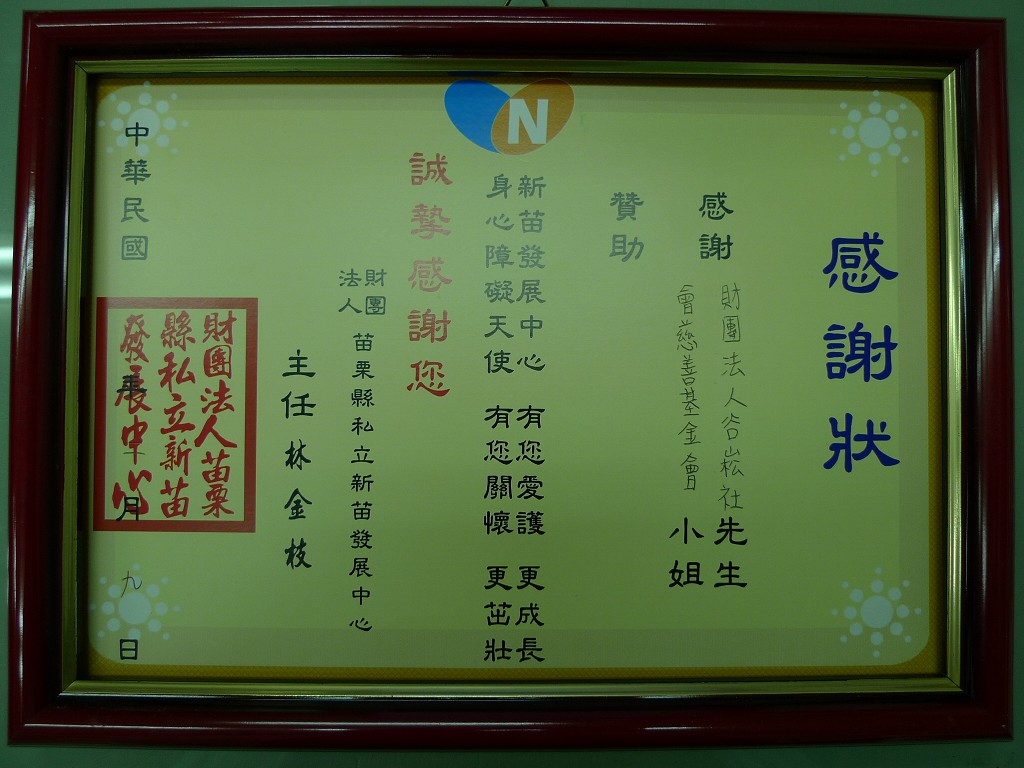 感謝狀
感謝 財團法人谷崧社會慈善基金會 先生
小姐
贊助
新苗發展中心 有您愛護 更成長
身心障礙天使 有您關懷 更茁壯
誠摯感謝您
財團法人 苗栗縣私立新苗發展中心
主任 林金枝
財團法人苗栗
縣私立新苗
發展中心
中華民國 年 月 九 日
N